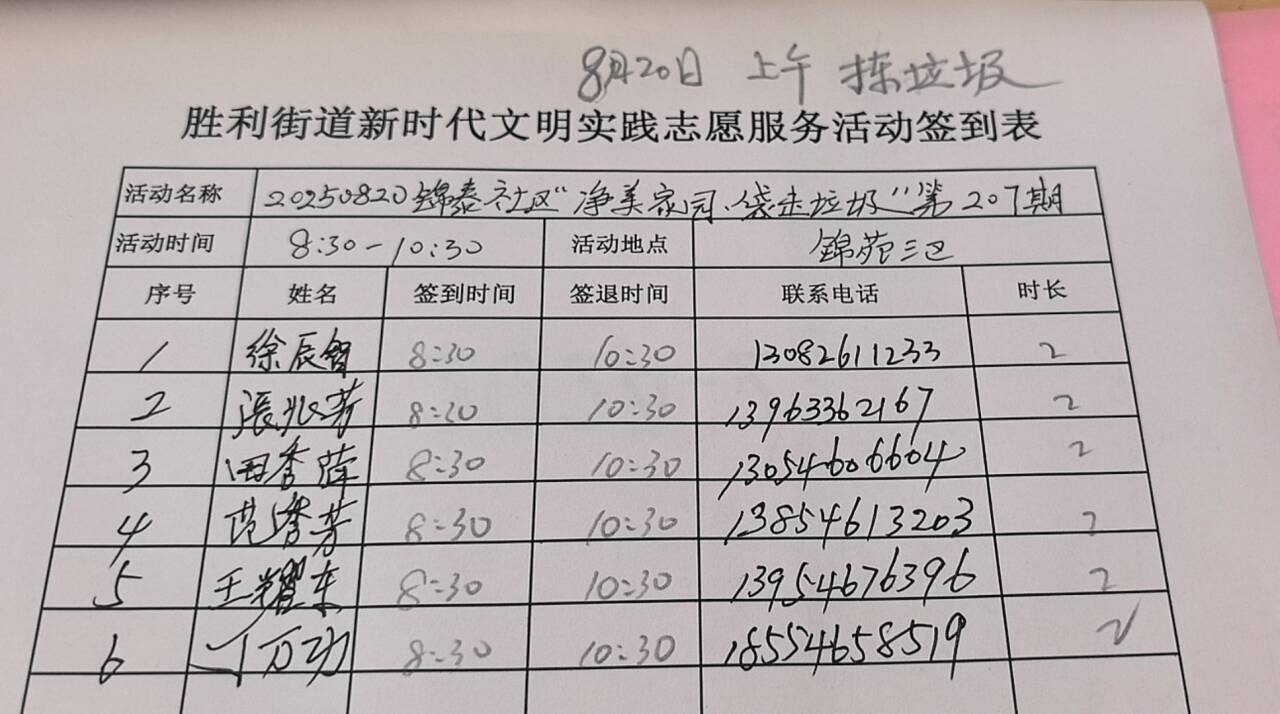 8月20日 上午 拣垃圾
胜利街道新时代文明实践志愿服务活动签到表
活动名称 20250820锦泰社区“净美家园、袋走垃圾”第207期
活动时间 8:30-10:30 活动地点 锦苑三区
序号 姓名 签到时间 签退时间 联系电话 时长
1 徐辰智 8:30 10:30 13082611233 2
2 張兆芳 8:30 10:30 13963362167 2
3 田秀萍 8:30 10:30 13054606604 2
4 范秀芳 8:30 10:30 13854613203 2
5 王耀东 8:30 10:30 13954676396 2
6 丁万功 8:30 10:30 18554658519 2